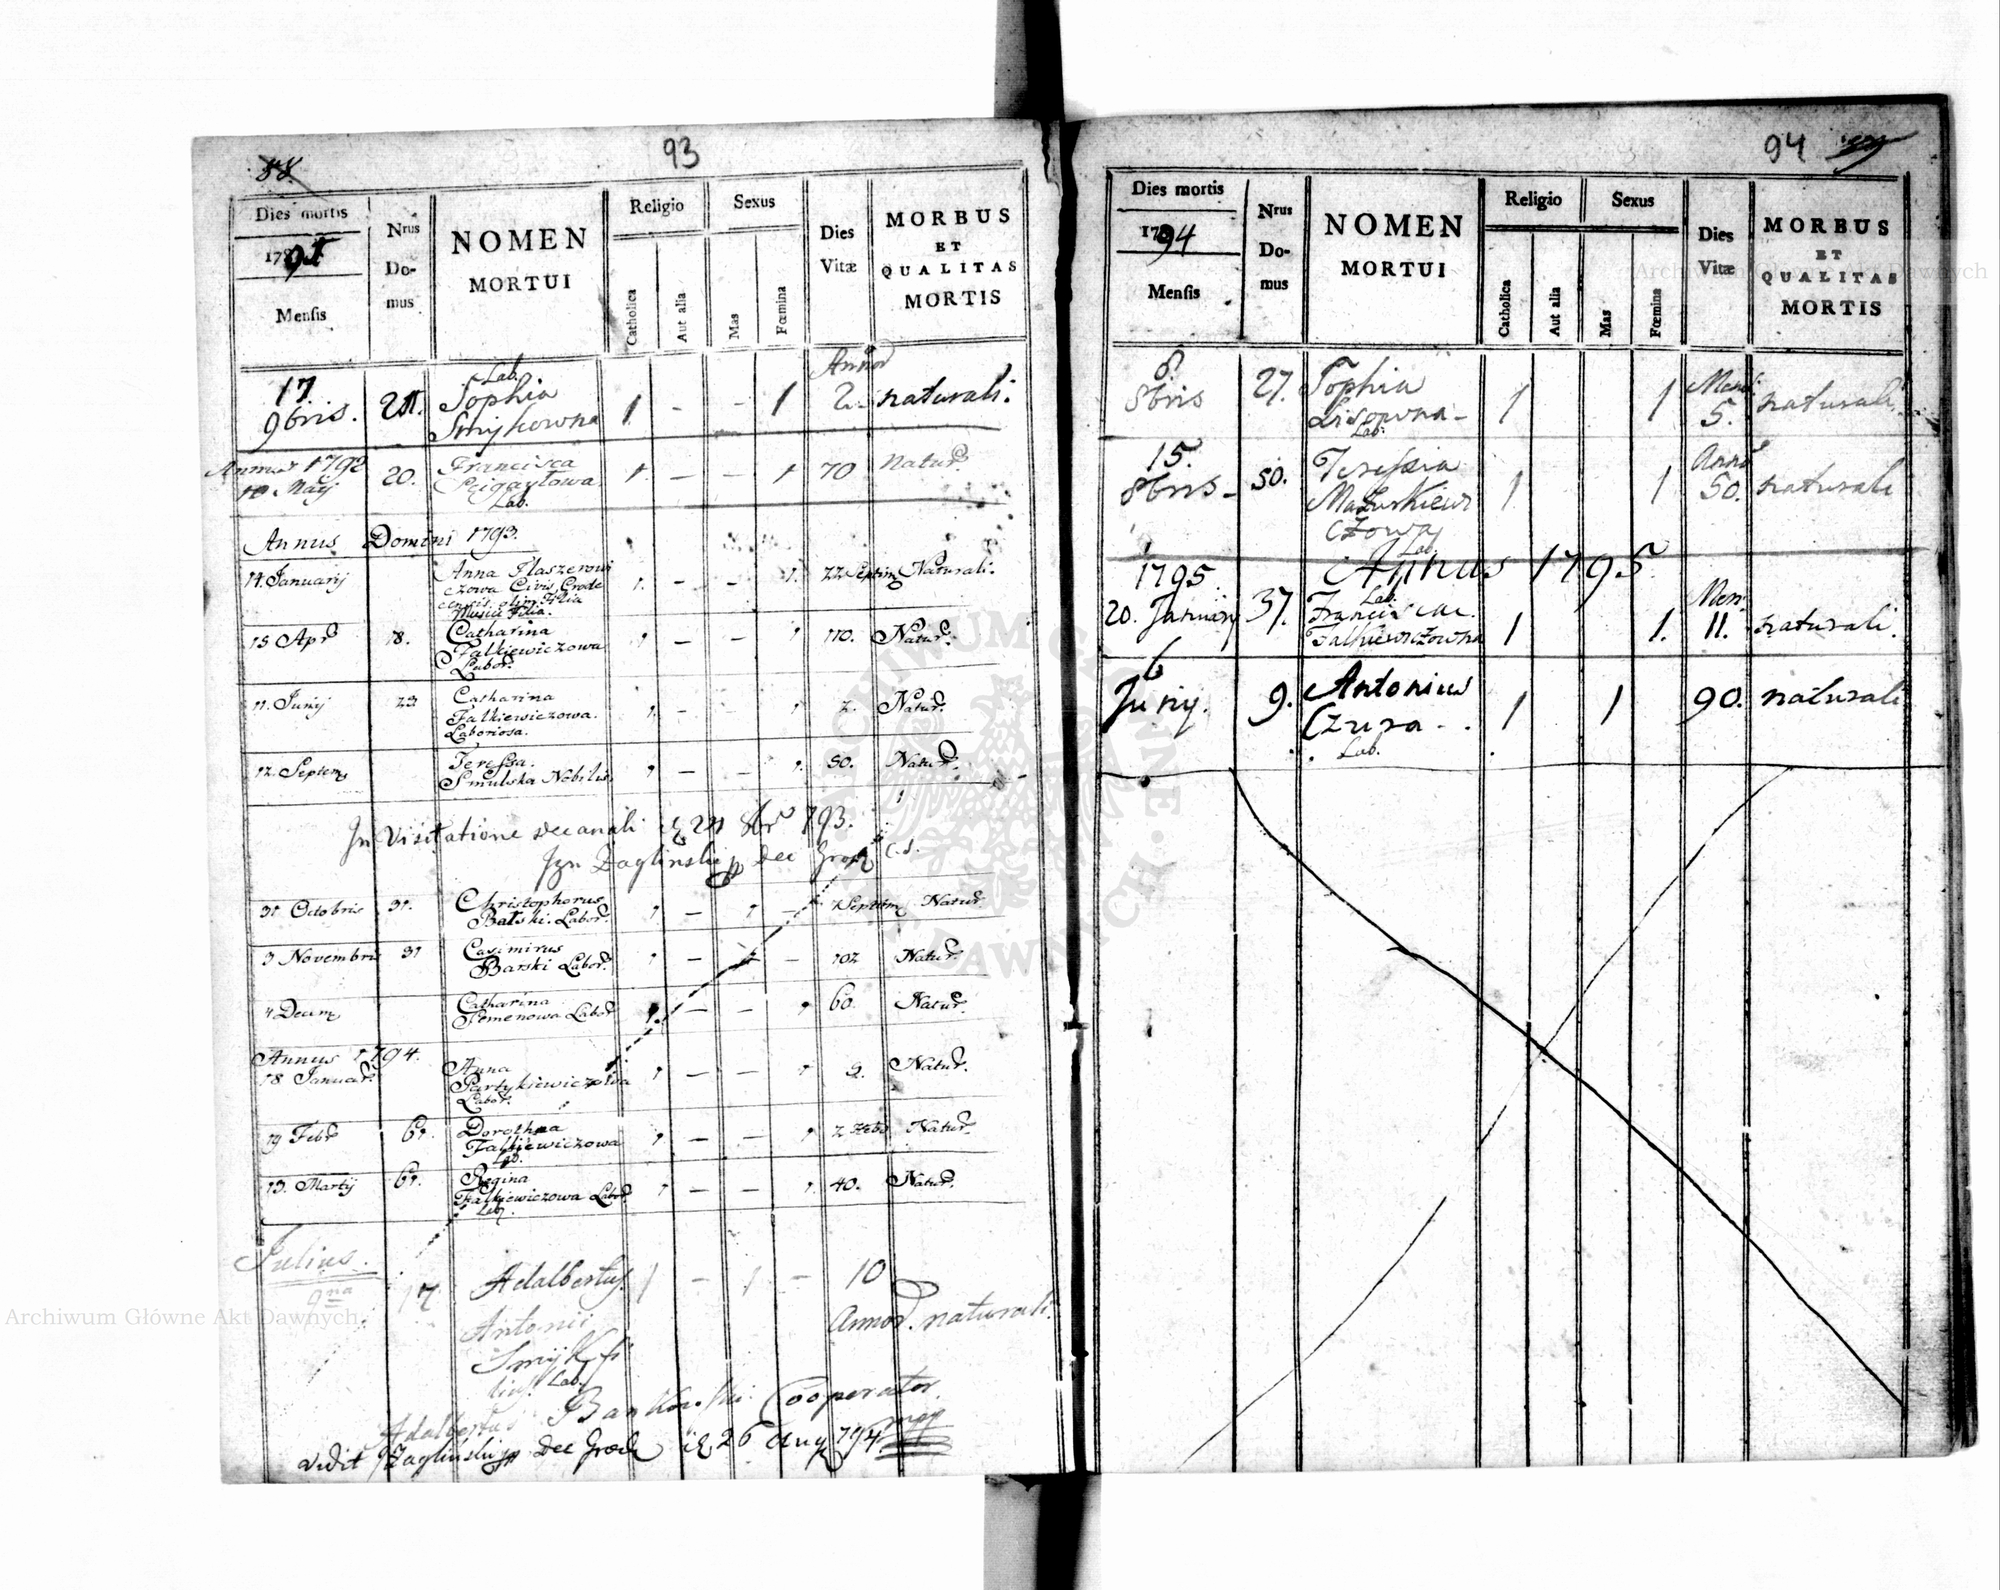 93
Dies mortis
Nrus
Do-
mus
NOMEN
MORTUI
Religio
Sexus
Dies
Vitæ
MORBUS
ET
QUALITAS
MORTIS
Mensis
Catholica
Aut alia
Mas
Fœmina
17.
9bris.
Lab.
Sophia
Smykowna
1
-
-
1
Annor
2
naturali.
Annus 1792
Maij
20.
Francisca
Lab.
1.
-
-
1
70
Natur.
Annus Domini 1793.
14. Januarij
Anna
czowa Civis Grode
Filia
1.
-
-
1.
22 Septim
Naturali.
15 Apr
18.
Catharina
Falkiewiczowa
Labor.
1
-
-
1
110.
Natur.
11. Junij
23
Catharina
Falkiewiczowa.
Laboriosa.
1.
-
1
2.
Natur.
12. Septem
Teressa.
Smulska Nobilis.
1
-
-
1.
50.
Natur.
In Visitatione decanali 24 8br 793.
31 Octobris
31.
Christophorus
Barski. Labor.
1
-
1
-
1 Septim
Natur.
3 Novembris
31
Casimirus
Barski Labor.
1
-
1
-
102
Natur.
4 Decem
Catharina
Semenowa Labor
1.
-
-
1
60.
Natur.
Annus 1794.
18 Januar.
Anna
Partykiewiczowa
Labor.
1
-
-
1
Natur.
19 Febr
61.
Dorothea
Falkiewiczowa
Lab.
1
-
-
1
2
Natur.
13. Martij
61.
Regina
Falkiewiczowa Labor.
1
-
-
1.
40.
Natur.
Julius.
9na
17
Adalbertus
Antonii
Smyk fi
lius. Lab.
1
-
1
-
10
Annor. naturali.
Adalbertus Bankowski Cooperator
mpp
vidit Zaglinski Dec Grod 26 Aug 794
94
Dies mortis
1794
Mensis
Nrus
Do-
mus
NOMEN
MORTUI
Religio
Sexus
Catholica
Aut alia
Mas
Fœmina
Dies
Vitæ
MORBUS
ET
QUALITAS
MORTIS
8
8bris
27.
Sophia
Lisowna
Lab.
1
1
Mens.
5.
naturali
15.
8bris
50.
Teressia
Mazurkiewi
czowa
Lab.
1
1
Anno
50.
naturali
Annus 1795
1795
20. January
37.
Lab.
Franciscae
Falkiewiczowna
1
1.
Men.
11.
naturali.
6
Juny.
9.
Antonius
Czura
Lab.
1
1
90.
naturali
Archiwum Główne Akt Dawnych
Archiwum Główne Akt Dawnych
ARCHIWUM GŁÓWNE AKT DAWNYCH